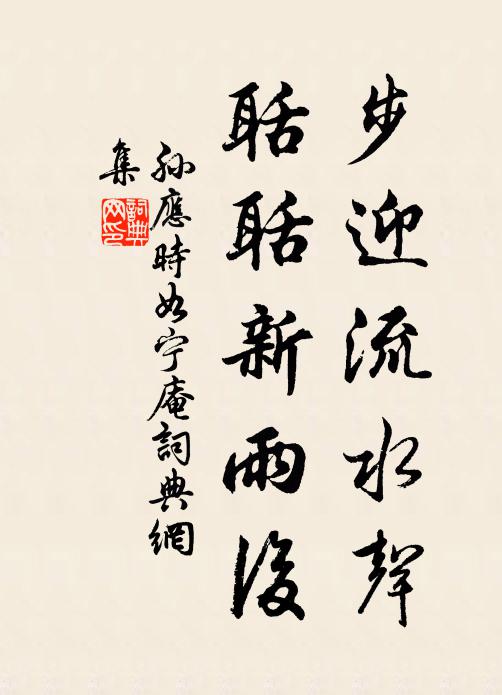 步迎流水聲
聒聒新雨後
孫應時如寧庵詞典網
集
詞典
网印